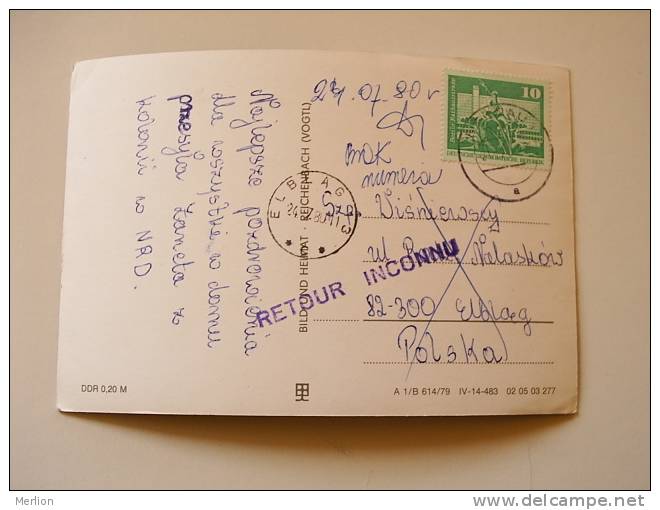 Najlepsze pozdrowienia
dla wszystkich w domu
przesyła Żaneta z
kolonii w NRD.
DDR 0,20 M
BILD UND HEIMAT · REICHENBACH (VOGTL)
24.07.80r
brak
numeru
ELBLĄG 3
RETOUR INCONNU
10
DEUTSCHE DEMOKRATISCHE REPUBLIK
a
Szp. Wiśniewscy
ul Nalasków
82-300 Elbląg
Polska
A 1/B 614/79 IV-14-483 02 05 03 277
Merlion
www.delcampe.net